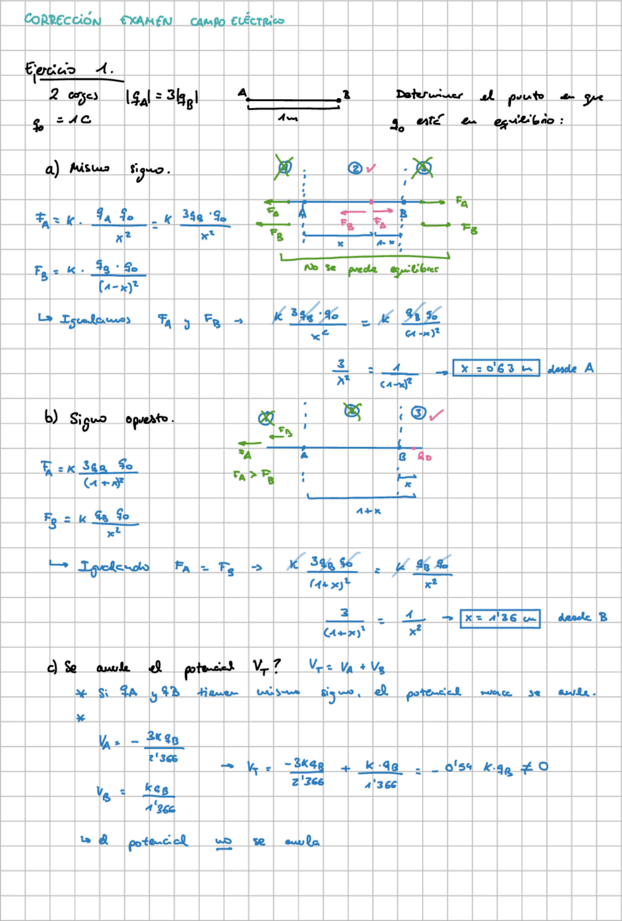 CORRECCIÓN EXAMEN CAMPO ELÉCTRICO
Ejercicio 1.
2 cargas |qA| = 3|qB|
A B
1m
Determinar el punto en que
q0 = 1C
q0 está en equilibrio:
a) Mismo signo.
1 2 ✓ 3
FA = K · qA q0 / x² = K 3qB · q0 / x²
FA FB A FB FA B FA FB
x 1-x
No se puede equilibrar
FB = K · qB · q0 / (1-x)²
↳ Igualamos FA y FB → K 3qB · q0 / x² = K qB q0 / (1-x)²
3 / x² = 1 / (1-x)² → x = 0'63 m desde A
b) Signo opuesto.
1 2 3 ✓
FA FB A B q0
FA > FB
x
1+x
FA = K 3qB q0 / (1+x)²
FB = K qB q0 / x²
↳ Igualando FA = FB → K 3qB q0 / (1+x)² = K qB q0 / x²
3 / (1+x)² = 1 / x² → x = 1'36 m desde B
c) Se anule el potencial VT? VT = VA + VB
* Si qA y qB tienen mismo signo, el potencial nunca se anula.
*
VA = - 3KqB / 2'366
→ VT = -3KqB / 2'366 + K·qB / 1'366 = - 0'54 K·qB ≠ 0
VB = KqB / 1'366
↳ el potencial no se anula